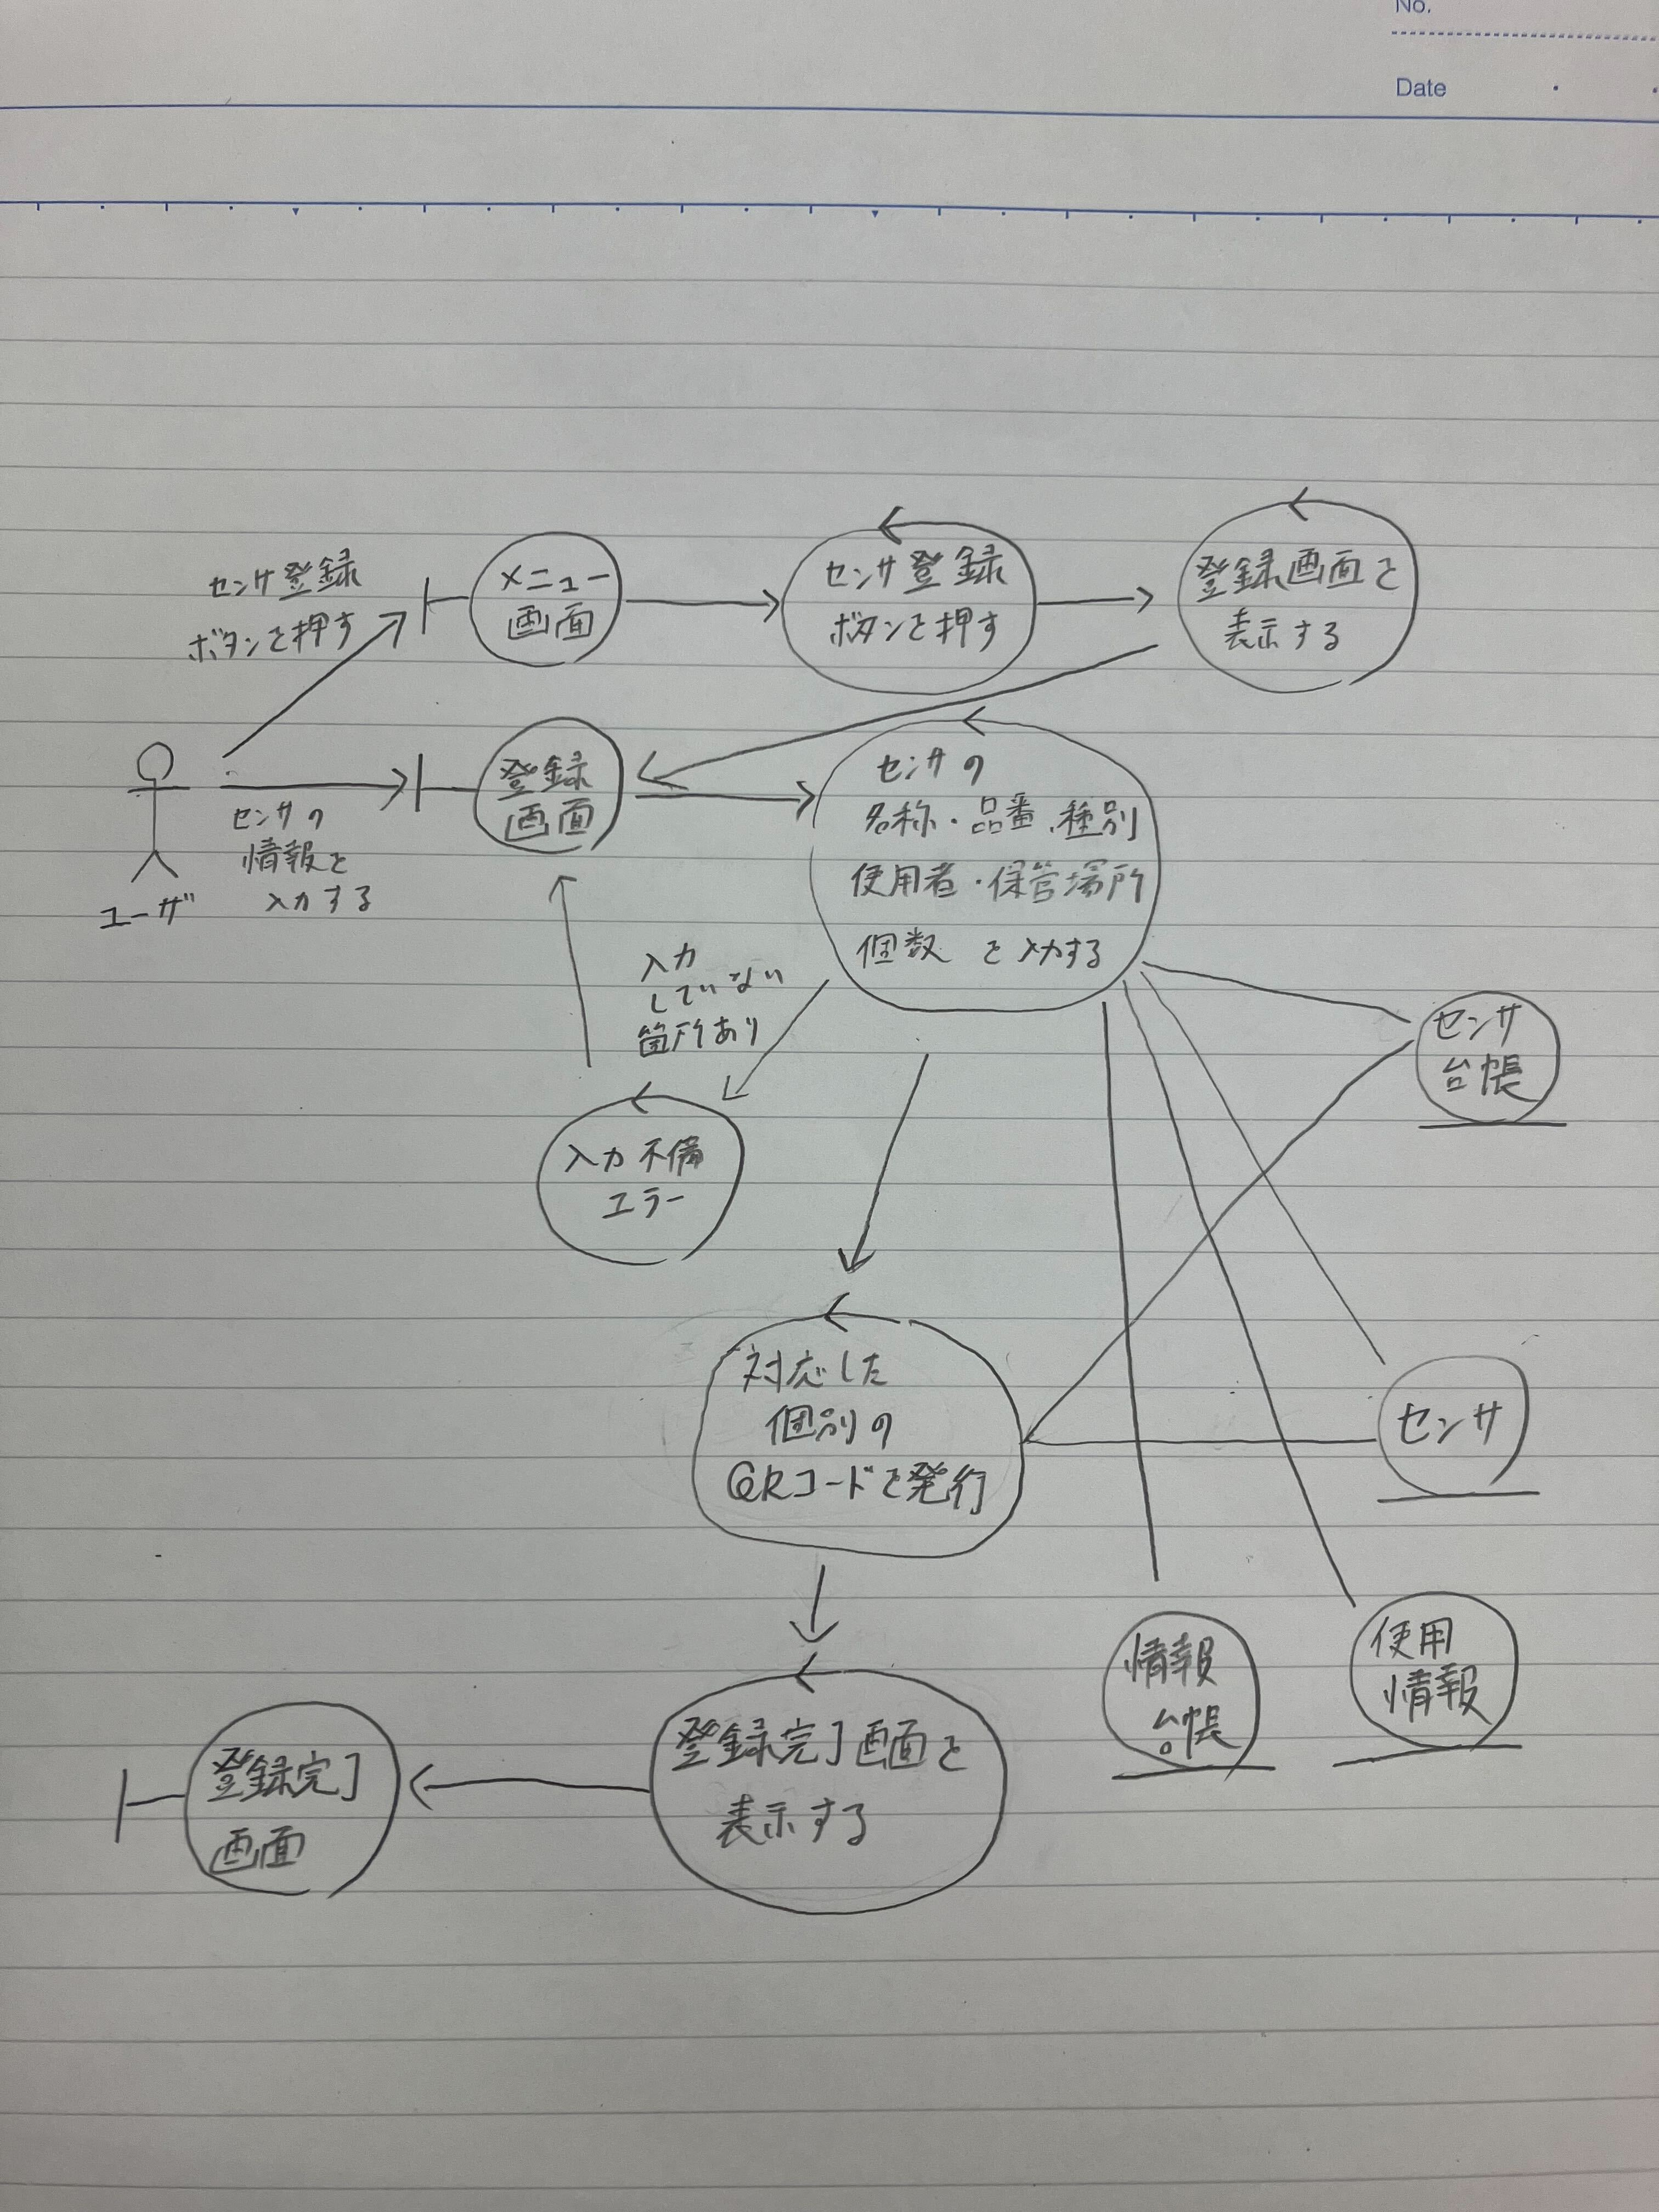 No.
Date
センサ登録
ボタンを押す
メニュー
画面
センサ登録
ボタンを押す
登録画面を
表示する
ユーザ
センサの
情報を
入力する
登録
画面
センサの
名称・品番、種別
使用者・保管場所
個数 を入力する
入力
していない
箇所あり
入力不備
エラー
センサ
台帳
対応した
個別の
QRコードを発行
センサ
情報
台帳
使用
情報
登録完了画面を
表示する
登録完了
画面